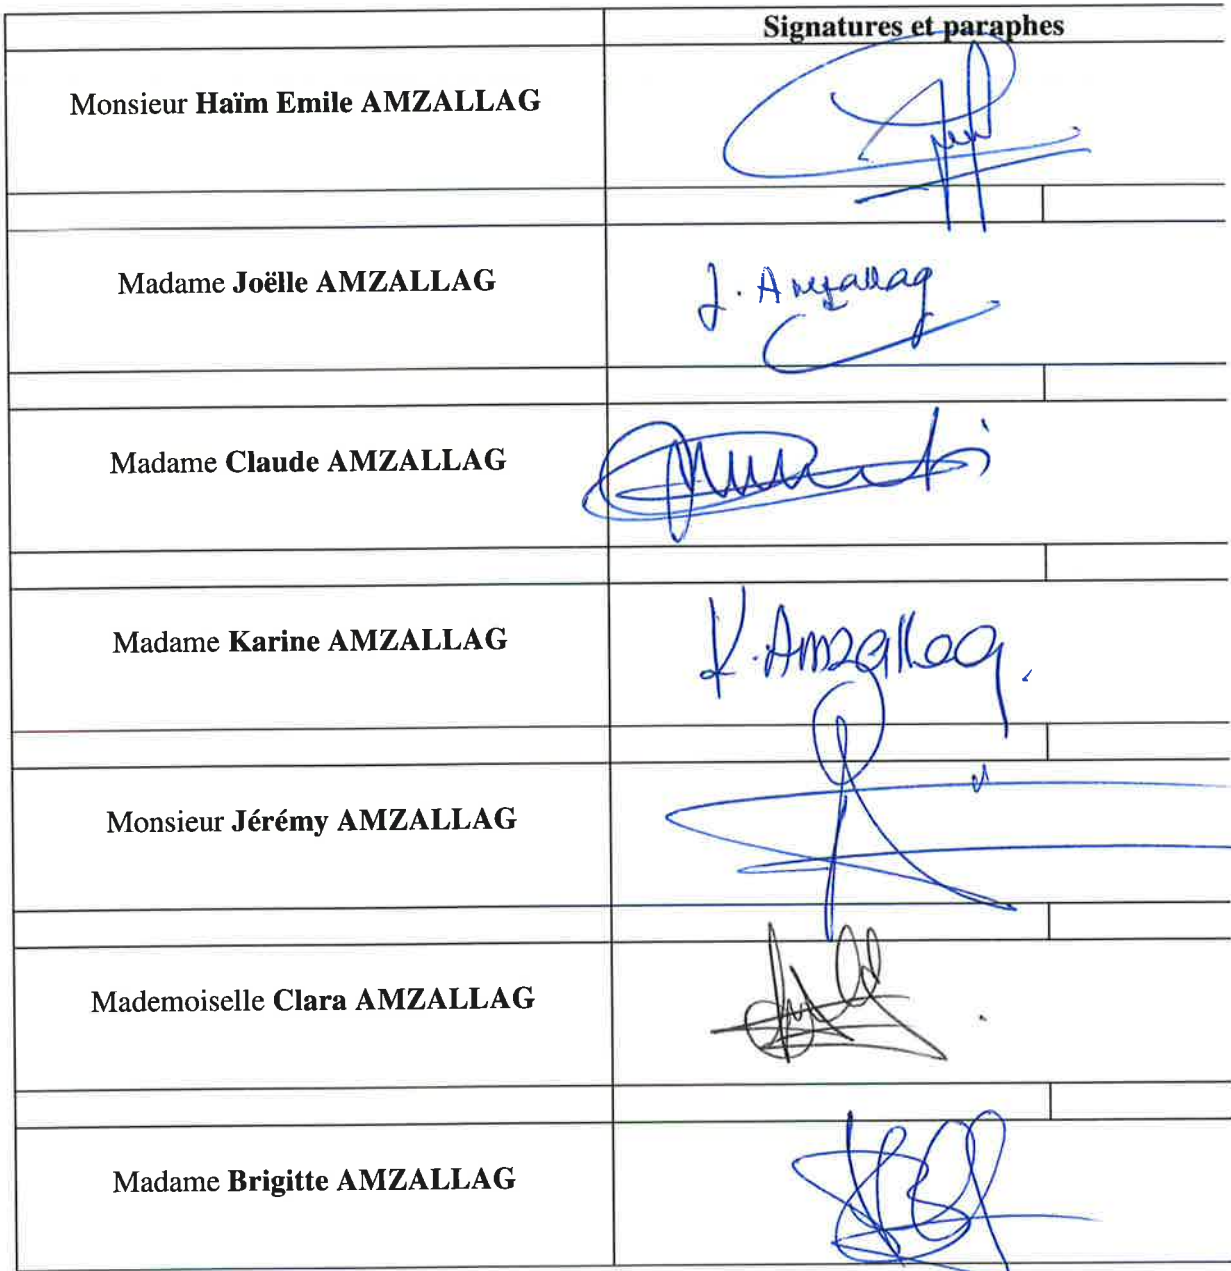 Signatures et paraphes
Monsieur Haïm Emile AMZALLAG
Madame Joëlle AMZALLAG
J. Amzallag
Madame Claude AMZALLAG
Madame Karine AMZALLAG
K. Amzallag.
Monsieur Jérémy AMZALLAG
Mademoiselle Clara AMZALLAG
Madame Brigitte AMZALLAG